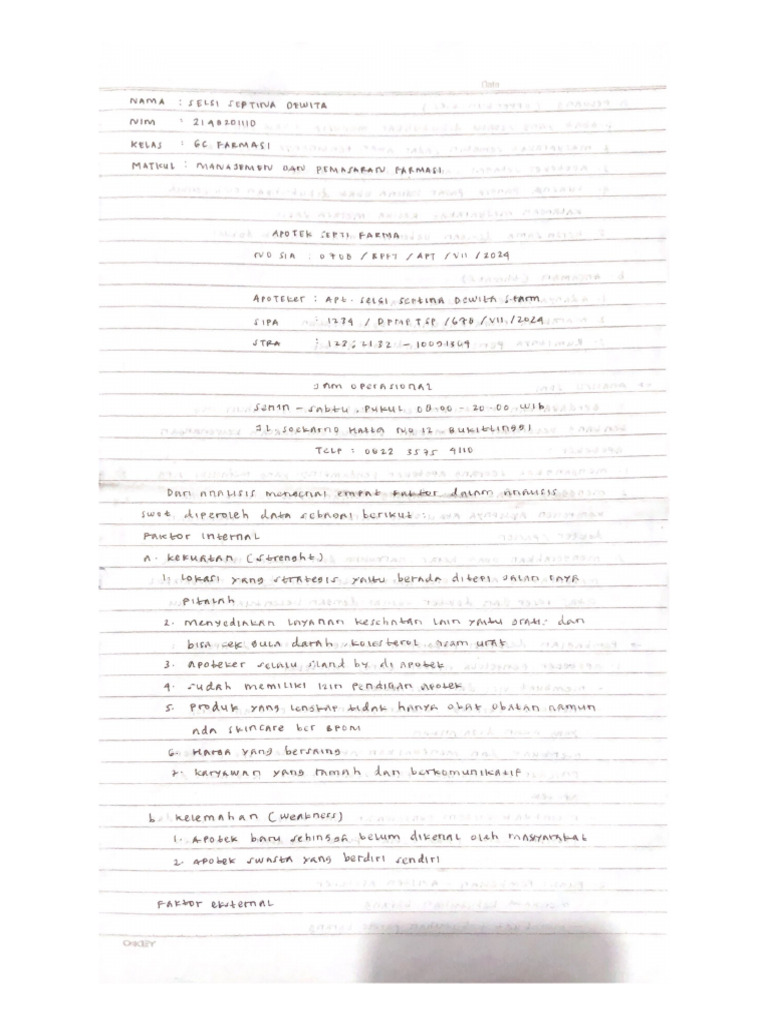 Date
NAMA : SELSI SEPTINA DEWITA
NIM : 2148201110
KELAS : 6C FARMASI
MATKUL : MANAJEMEN DAN PEMASARAN FARMASI
APOTEK SEPTI FARMA
NO SIA : 0708 / BPPT / APT / VII / 2024
APOTEKER : APT. SELSI SEPTINA DEWITA S.FARM
SIPA : 1234 / DPMPTSP / 678 / VII / 2024
STRA :
JAM OPERASIONAL
SENIN - SABTU, PUKUL 08.00 - 20.00 WIB
JL SOEKARNO HATTA NO 12 BUKITTINGGI
TELP : 0822 3575 4110
Dari ANALISIS mengenai empat faktor dalam ANALISIS
swot diperoleh data sebagai berikut :
Faktor internal
a. kekuatan (Strenght)
1. Lokasi yang strategis yaitu berada ditepi jalan raya
pitalah
2. menyediakan layanan kesehatan lain yaitu gratis dan
bisa cek gula darah, kolesterol asam urat
3. Apoteker selalu stand by di apotek
4. sudah memiliki izin pendirian apotek
5. produk yang lengkap tidak hanya obat obatan namun
ada skincare ber BPOM
6. Harga yang bersaing
7. karyawan yang ramah dan berkomunikatif
b. kelemahan (weakness)
1. Apotek baru sehingga belum dikenal oleh masyarakat
2. Apotek swasta yang berdiri sendiri
Faktor eksternal
OKEY